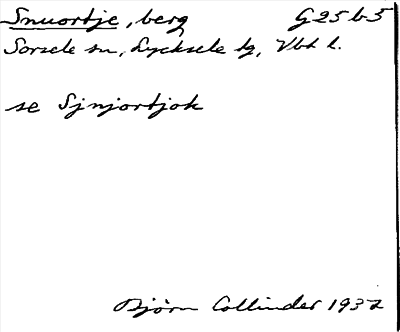 Snuortje, berg G25b5
Sorsele sn, Lycksele tg, Vbt l.
se Sjnjortjok
Björn Collinder 1932